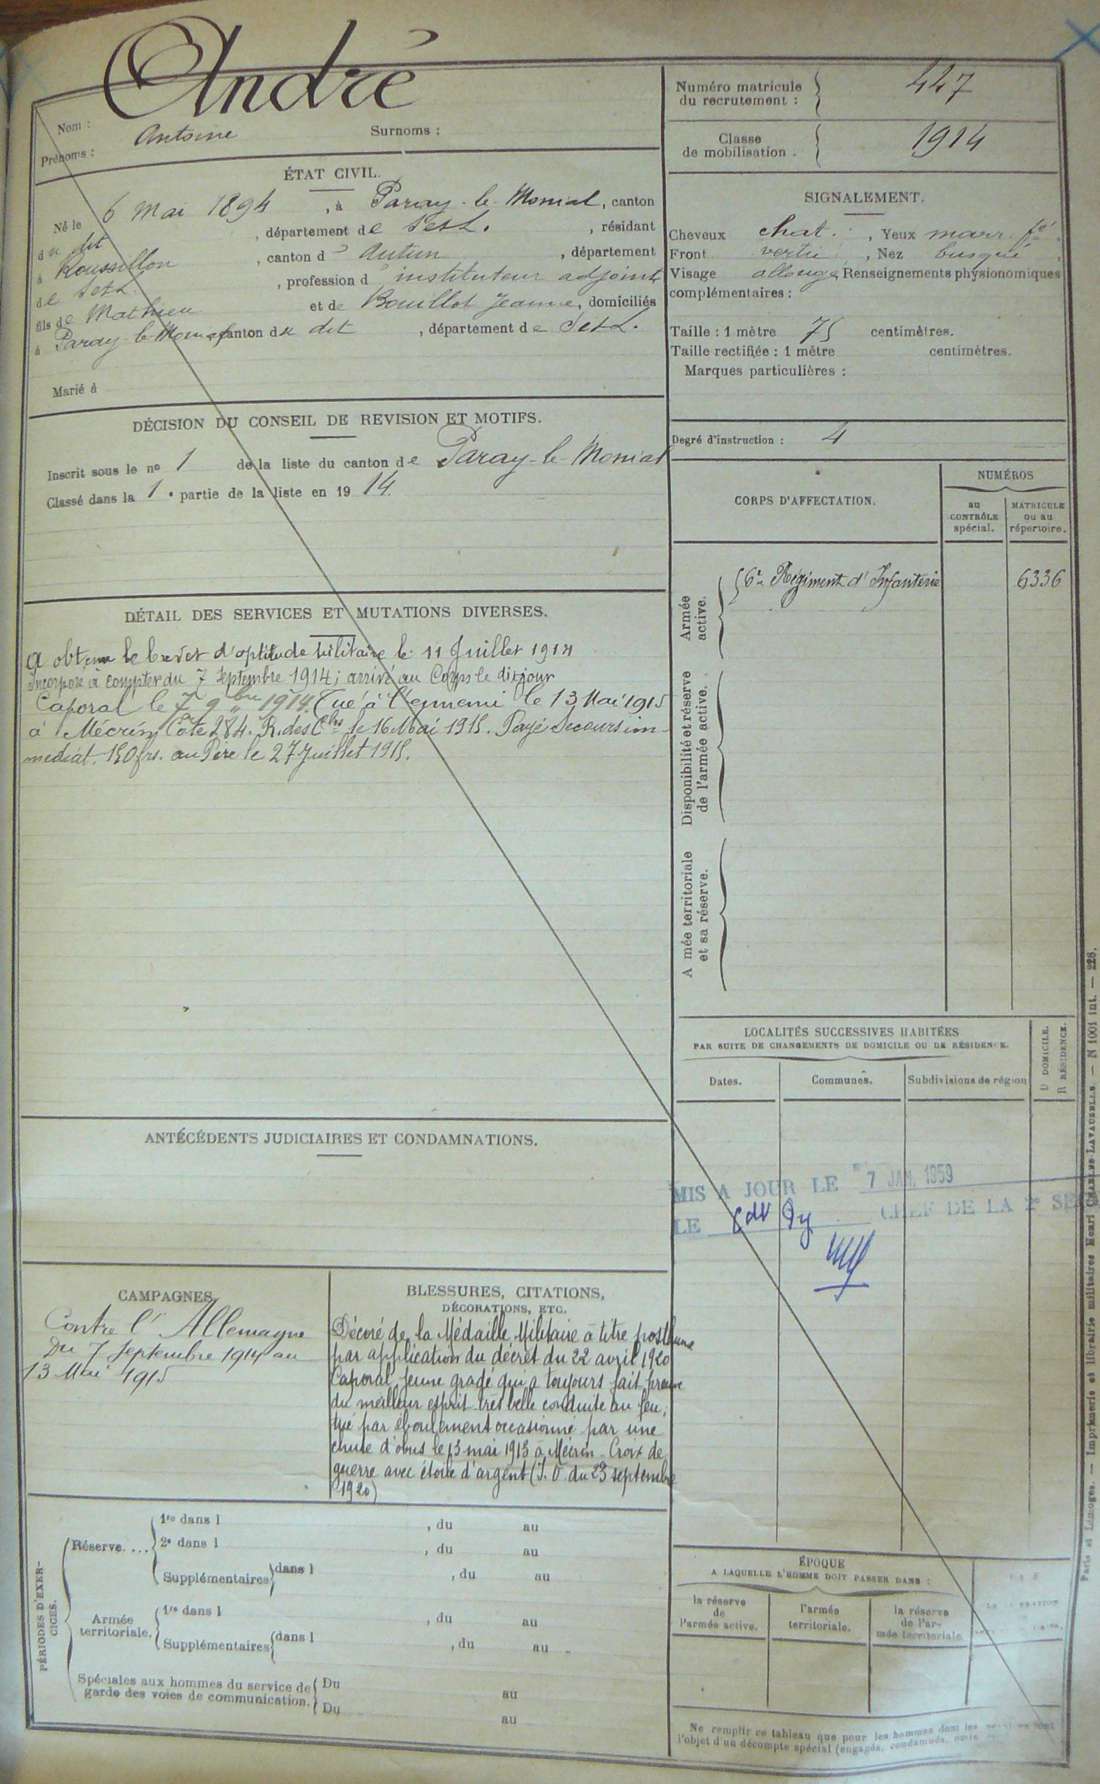 André
Nom :
Prénoms : Antoine Surnoms :
ÉTAT CIVIL.
Né le 6 Mai 1894, à Paray-le-Monial, canton
du dit, département de S et L., résidant
à Roussillon, canton d' Autun, département
de S et L, profession d' instituteur adjoint
fils de Mathieu et de Bouillot Jeanne, domiciliés
à Paray-le-Monial canton du dit, département de S et L.
Marié à
DÉCISION DU CONSEIL DE REVISION ET MOTIFS.
Inscrit sous le nº 1 de la liste du canton de Paray-le-Monial
Classé dans la 1e partie de la liste en 1914.
DÉTAIL DES SERVICES ET MUTATIONS DIVERSES.
A obtenu le brevet d'aptitude militaire le 11 Juillet 1914
Incorporé à compter du 7 Septembre 1914; arrivé au Corps le dit jour
Caporal le 7 9bre 1914. Tué à l'ennemi le 13 Mai 1915
à Mécrin Cote 284. R. des Chs le 16 Mai 1915. Payé secours im-
médiat. 150 frs. au Père le 27 Juillet 1915.
ANTÉCÉDENTS JUDICIAIRES ET CONDAMNATIONS.
CAMPAGNES.
Contre l'Allemagne
Du 7 Septembre 1914 au
13 Mai 1915
BLESSURES, CITATIONS,
DÉCORATIONS, ETC.
Décoré de la Médaille Militaire à titre posthume
par application du décret du 22 avril 1920
Caporal, jeune gradé qui a toujours fait preuve
du meilleur esprit très belle conduite au feu,
tué par éboulement occasionné par une
chute d'obus le 13 mai 1915 à Mécrin - Croix de
guerre avec étoile d'argent (J.O. du 23 septembre
1920)
PÉRIODES D'EXERCICES.
Réserve....
1re dans l , du au
2e dans l , du au
Supplémentaires dans l , du au
Armée territoriale.
1re dans l , du au
Supplémentaires dans l , du au
Spéciales aux hommes du service de Du au
garde des voies de communication. Du au
Numéro matricule
du recrutement : 447
Classe
de mobilisation . 1914
SIGNALEMENT.
Cheveux chat. , Yeux marr. fé
Front vertic , Nez busqué
Visage allongé Renseignements physionomiques
complémentaires :
Taille : 1 mètre 75 centimètres.
Taille rectifiée : 1 mètre centimètres.
Marques particulières :
Degré d'instruction : 4
CORPS D'AFFECTATION.
NUMÉROS
au CONTRÔLE spécial.
MATRICULE ou au répertoire.
Armée active.
Régiment d'Infanterie 6336
Disponibilité et réserve de l'armée active.
A mée territoriale et sa réserve.
LOCALITÉS SUCCESSIVES HABITÉES
PAR SUITE DE CHANGEMENTS DE DOMICILE OU DE RÉSIDENCE.
Dates. Communes. Subdivisions de région
D DOMICILE.
R RÉSIDENCE.
MIS A JOUR LE 7 JAN. 1959
LE CHEF DE LA 2e SE
ÉPOQUE
A LAQUELLE L'HOMME DOIT PASSER DANS :
la réserve de l'armée active.
l'armée territoriale.
la réserve de l'armée territoriale
Ne remplir ce tableau que pour les hommes dont les
l'objet d'un décompte spécial (engagés, condamnés,
Paris et Limoges. — Imprimerie et librairie militaires Henri CHARLES-LAVAUZELLE. — N 1001 int. — 228.